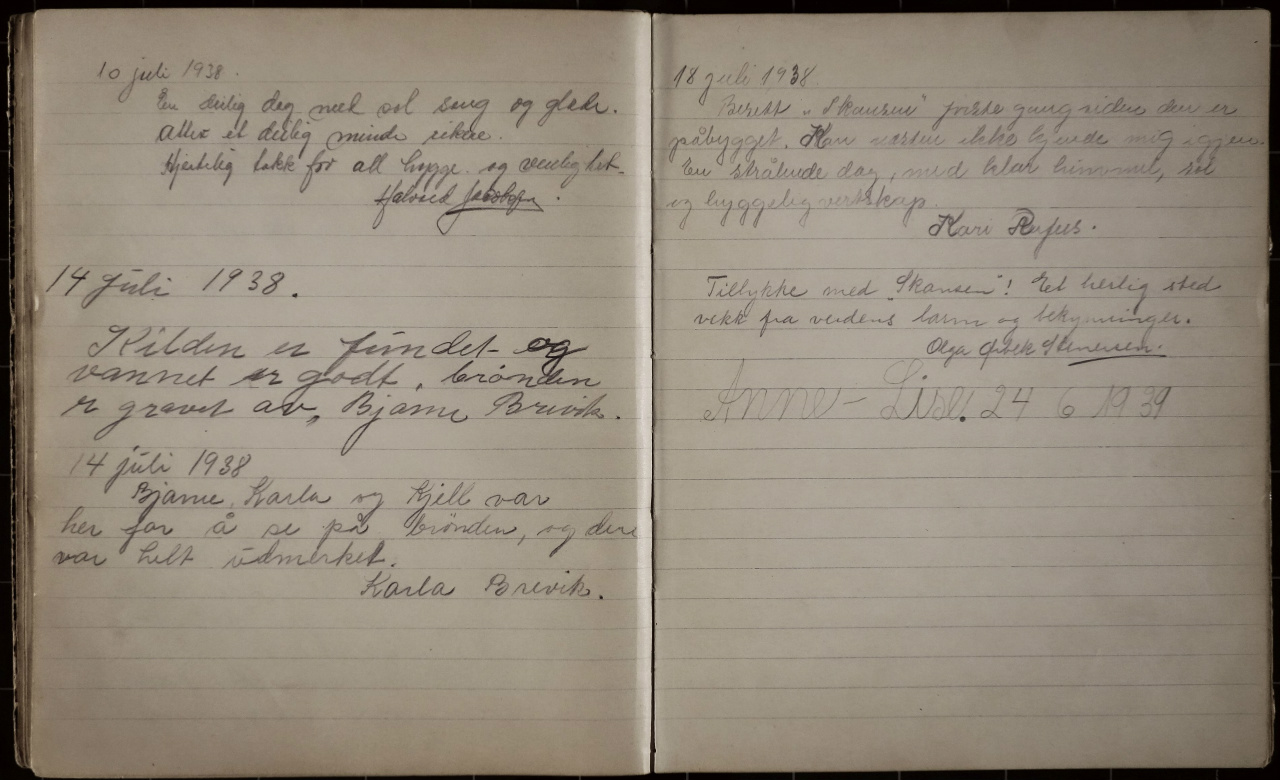 10 juli 1938.
En deilig dag med sol sang og glede.
Atter et deilig minde rikere.
Hjertelig takk for all hygge og venlighet.
Halvard Jacobsen.
14 Juli 1938.
Kilden er fundet og
vannet er godt, brønden
er gravet av, Bjarne Brevik.
14 juli 1938
Bjarne, Karla og Kjell var
her for å se på brønden, og den
var helt udmerket.
Karla Brevik.
18 juli 1938.
Besøkt „Skansen" første gang siden den er
påbygget. Kan næsten ikke kjende mig igjen.
En strålende dag, med klar himmel, sol
og hyggelig vertskap.
Kari Rufus.
Tillykke med „Skansen"! Et herlig sted
vekk fra verdens larm og bekymringer.
Olga Stenersen.
Anne-Lise. 24 6 1939